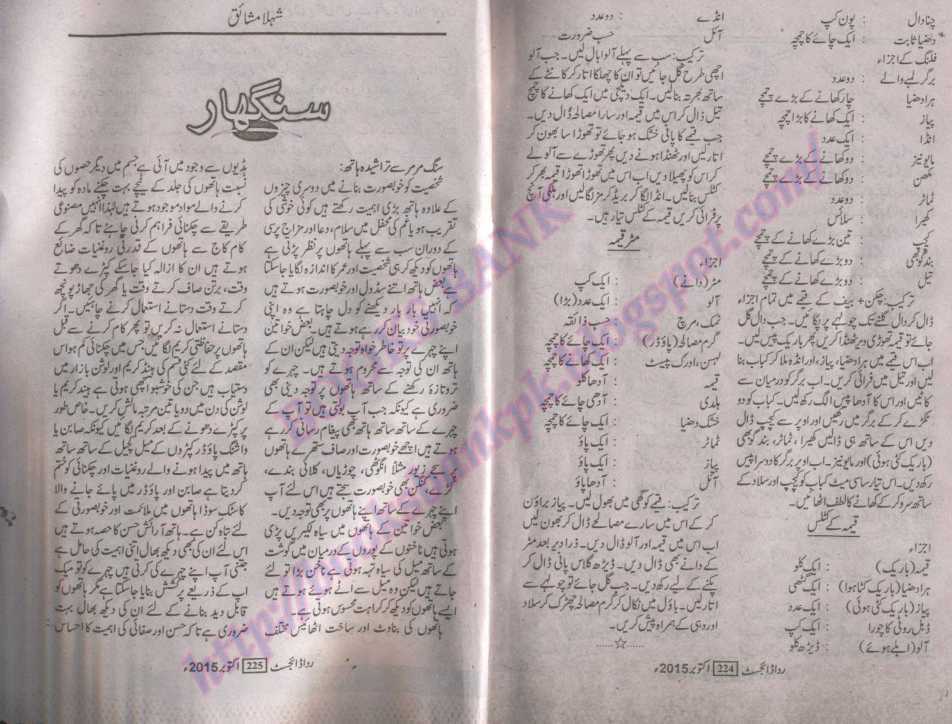 چنا دال : پون کپ
دھنیا ثابت : ایک چائے کا چمچہ
فلنگ کے اجزاء
برگر لمبے والے : دو عدد
ہرا دھنیا : چار کھانے کے بڑے چمچے
پیاز : ایک کھانے کا بڑا چمچہ
انڈا : ایک عدد
مایونیز : دو کھانے کے بڑے چمچے
مکھن : دو کھانے کے بڑے چمچے
ٹماٹر : دو عدد
کھیرا : سلائس
کیچپ : تین بڑے کھانے کے چمچے
بند گوبھی : دو کھانے کے بڑے چمچے
تیل : دو بڑے کھانے کے چمچے
ترکیب: چکن + بیف کے قیمے میں تمام اجزاء
ڈال کر دال گلنے تک چولہے پر پکائیں۔ جب دال گل
جائے تو قیمہ تھوڑی دیر ٹھنڈا کریں پھر باریک پیس لیں۔
اب اس قیمے میں ہرا دھنیا، پیاز، اور انڈہ ملا کر کباب بنا
لیں اور تیل میں فرائی کریں۔ اب برگر کو درمیان سے
کاٹیں اور اس کا آدھا پیس الگ رکھ لیں۔ کباب کو دو
ٹکڑے کر کے برگر میں رکھیں اور اوپر سے کیچپ ڈال
دیں اس کے ساتھ ہی ڈالیں کھیرا، ٹماٹر، بند گوبھی
(باریک کٹی ہوئی) اور مایونیز۔ اب اوپر برگر کا دوسرا پیس
رکھ دیں۔ اس تیار سامی میٹ کباب کو کیچپ اور سلاد کے
ساتھ سرو کر کے کھانے کا لطف اٹھائیں۔
قیمہ کے کٹلس
اجزاء
قیمہ (باریک) : ایک کلو
ہرا دھنیا (باریک کٹا ہوا) : ایک گٹھی
پیاز (باریک کٹی ہوئی) : ایک عدد
ڈبل روٹی کا چورا : ایک کپ
آلو (ابلے ہوئے) : ڈیڑھ کلو
انڈے : دو عدد
آئل : حسب ضرورت
ترکیب: سب سے پہلے آلو ابال لیں۔ جب آلو
اچھی طرح گل جائیں تو ان کا چھلکا اتار کر کانٹے کے
ساتھ بھرتہ بنالیں۔ ایک دیگچی میں ایک کھانے کا چمچ
تیل ڈال کر اس میں قیمہ اور سارا مصالحہ ڈال دیں۔
جب قیمے کا پانی خشک ہو جائے تو تھوڑا سا بھون کر
اتار لیں اور ٹھنڈا ہونے دیں پھر تھوڑے سے آلو لے
کر اس کو پھیلا دیں اب اس میں تھوڑا تھوڑا قیمہ بھر کر
کٹلس بنالیں۔ انڈا لگا کر بریڈ کرمز لگالیں اور ہلکی آنچ
پر فرائی کریں قیمہ کے کٹلس تیار ہیں۔
مٹر قیمہ
اجزاء
مٹر (دانے) : ایک کپ
آلو : ایک عدد (بڑا)
نمک، مرچ : حسب ذائقہ
گرم مصالحہ (پاؤڈر) : ایک چائے کا چمچہ
لہسن، ادرک پیسٹ : ایک کھانے کا چمچہ
قیمہ : آدھا کلو
ہلدی : آدھی چائے کا چمچہ
خشک دھنیا : ایک چائے کا چمچہ
ٹماٹر : ایک پاؤ
پیاز : ایک پاؤ
آئل : آدھا پاؤ
ترکیب: قیمے کو گھی میں بھول لیں۔ پیاز براؤن
کر کے اس میں سارے مصالحے ڈال کر بھون لیں
اب اس میں قیمہ اور آلو ڈال دیں۔ ذرا دیر بعد مٹر
کے دانے بھی ڈال دیں۔ ڈیڑھ گلاس پانی ڈال کر
پکنے کے لیے رکھ دیں۔ جب گل جائے تو چولہے سے
اتار لیں۔ باؤل میں نکال کر گرم مصالحہ چھڑک کر سلاد
اور دہی کے ہمراہ پیش کریں۔
......☆......
ردا ڈائجسٹ 224 اکتوبر 2015ء
شہلا مشائق
سنگھار
سنگ مرمر سے تراشیدہ ہاتھ:
شخصیت کو خوبصورت بنانے میں دوسری چیزوں
کے علاوہ ہاتھ بڑی اہمیت رکھتے ہیں کوئی خوشی کی
تقریب ہو یا غم کی محفل میں سلام، دعا اور مزاج پرسی
کے دوران سب سے پہلے ہاتھوں پر نظر پڑتی ہے
ہاتھوں کو دیکھ کر ہی شخصیت اور عمر کا اندازہ لگایا جاسکتا
ہے بعض ہاتھ اتنے سڈول اور خوبصورت ہوتے ہیں
کہ انہیں بار بار دیکھنے کو دل چاہتا ہے وہ اپنی
خوبصورتی خود بیان کر رہے ہوتے ہیں۔ بعض خواتین
اپنے چہرے پر تو خاطر خواہ توجہ دیتی ہیں لیکن ان کے
ہاتھ ان کی توجہ سے محروم ہوتے ہیں۔ چہرے کو
تروتازہ رکھنے کے ساتھ ہاتھوں پر توجہ دینی بھی
ضروری ہے کیونکہ جب آپ بولتی ہیں تو آپ کے
چہرے کے ساتھ ساتھ ہاتھ بھی پیغام رسانی کر رہے
ہوتے ہیں اچھے خوبصورت اور صاف ستھرے ہاتھوں
پر سے زیور مثلاً انگوٹھی، چوڑیاں، کلائی بندے،
کڑے، کنگن بھی خوبصورت سجتے ہیں اس لئے آپ
اپنے چہرے کے ساتھ اپنے ہاتھوں پر بھی توجہ دیں۔
بعض خواتین کے ہاتھوں میں سیاہ لکیریں پڑی
ہوتی ہیں ناخنوں کے پوروں کے درمیان میں گوشت
کے ساتھ میل کی سیاہ تہہ ہوتی ہے ناخن بڑا تو لئے
جاتے ہیں لیکن وہ میل سے اٹے ہوئے ہوتے ہیں
ایسے ہاتھوں کو دیکھ کر کراہت محسوس ہوتی ہے۔
ہاتھوں کی بناوٹ اور ساخت اٹھائیس مختلف
ہڈیوں سے وجود میں آئی ہے جسم میں دیگر حصوں کی
نسبت ہاتھوں کی جلد کے نیچے بہت چکنے مادہ کو پیدا
کرنے والے مواد موجود ہوتے ہیں لہٰذا انہیں مصنوعی
طریقے سے چکنائی فراہم کرنی چاہئے تاکہ گھر کے
کام کاج سے ہاتھوں کے قدرتی روغنیات ضائع
ہوتے ہیں ان کا ازالہ کیا جاسکے کپڑے دھوتے
وقت، برتن صاف کرتے وقت یا گھر کی جھاڑ پونچھ
کرتے وقت دستانے استعمال کرنے چاہئیں۔ اگر
دستانے استعمال نہ کریں تو پھر کام کرنے سے قبل
ہاتھوں پر حفاظتی کریم لگائیں جس میں چکنائی کم ہو اس
مقصد کے لئے کئی قسم کی ہینڈ کریم اور لوشن بازار میں
دستیاب ہیں جن کی خوشبو اچھی ہوتی ہے ہینڈ کریم یا
لوشن کی دن میں دو یا تین مرتبہ مالش کریں۔ خاص طور
پر کپڑے دھونے کے بعد کریم لگائیں کیونکہ صابن یا
واشنگ پاؤڈر کپڑوں کے میل کچیل کے ساتھ ساتھ
ہاتھ میں پیدا ہونے والے روغنیات اور چکنائی کو ختم
کر دیتا ہے صابن اور پاؤڈر میں پائے جانے والا
کاسٹک سوڈا ہاتھوں میں ملائمت اور خوبصورتی کے
لئے تباہ کن ہے۔ ہاتھ آرائش حسن کا حصہ ہوتے ہیں
اس لئے ان کی بھی دیکھ بھال اتنی اہمیت کی حامل ہے
جتنی آپ اپنے چہرے کی کرتی ہیں چہرے کو تو میک
اپ کے ذریعے پرکشش بنایا جاسکتا ہے مگر ہاتھوں کو
قابل دید بنانے کے لئے ان کی دیکھ بھال بہت
ضروری ہے تاکہ حسن اور صفائی کی اہمیت کا احساس
ردا ڈائجسٹ 225 اکتوبر 2015ء